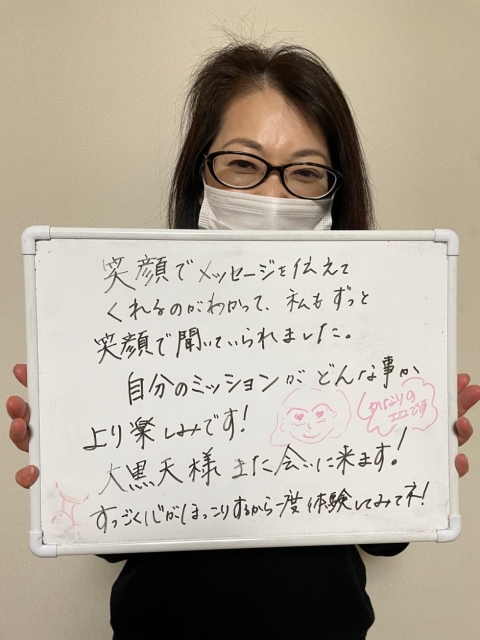 笑顔でメッセージを伝えて
くれるのがわかって、私もずっと
笑顔で聞いていられました。
自分のミッションがどんな事か
より楽しみです!
かなりの
エロです
大黒天様また会いに来ます!
すっごく心がほっこりするから一度体験してみてネ!